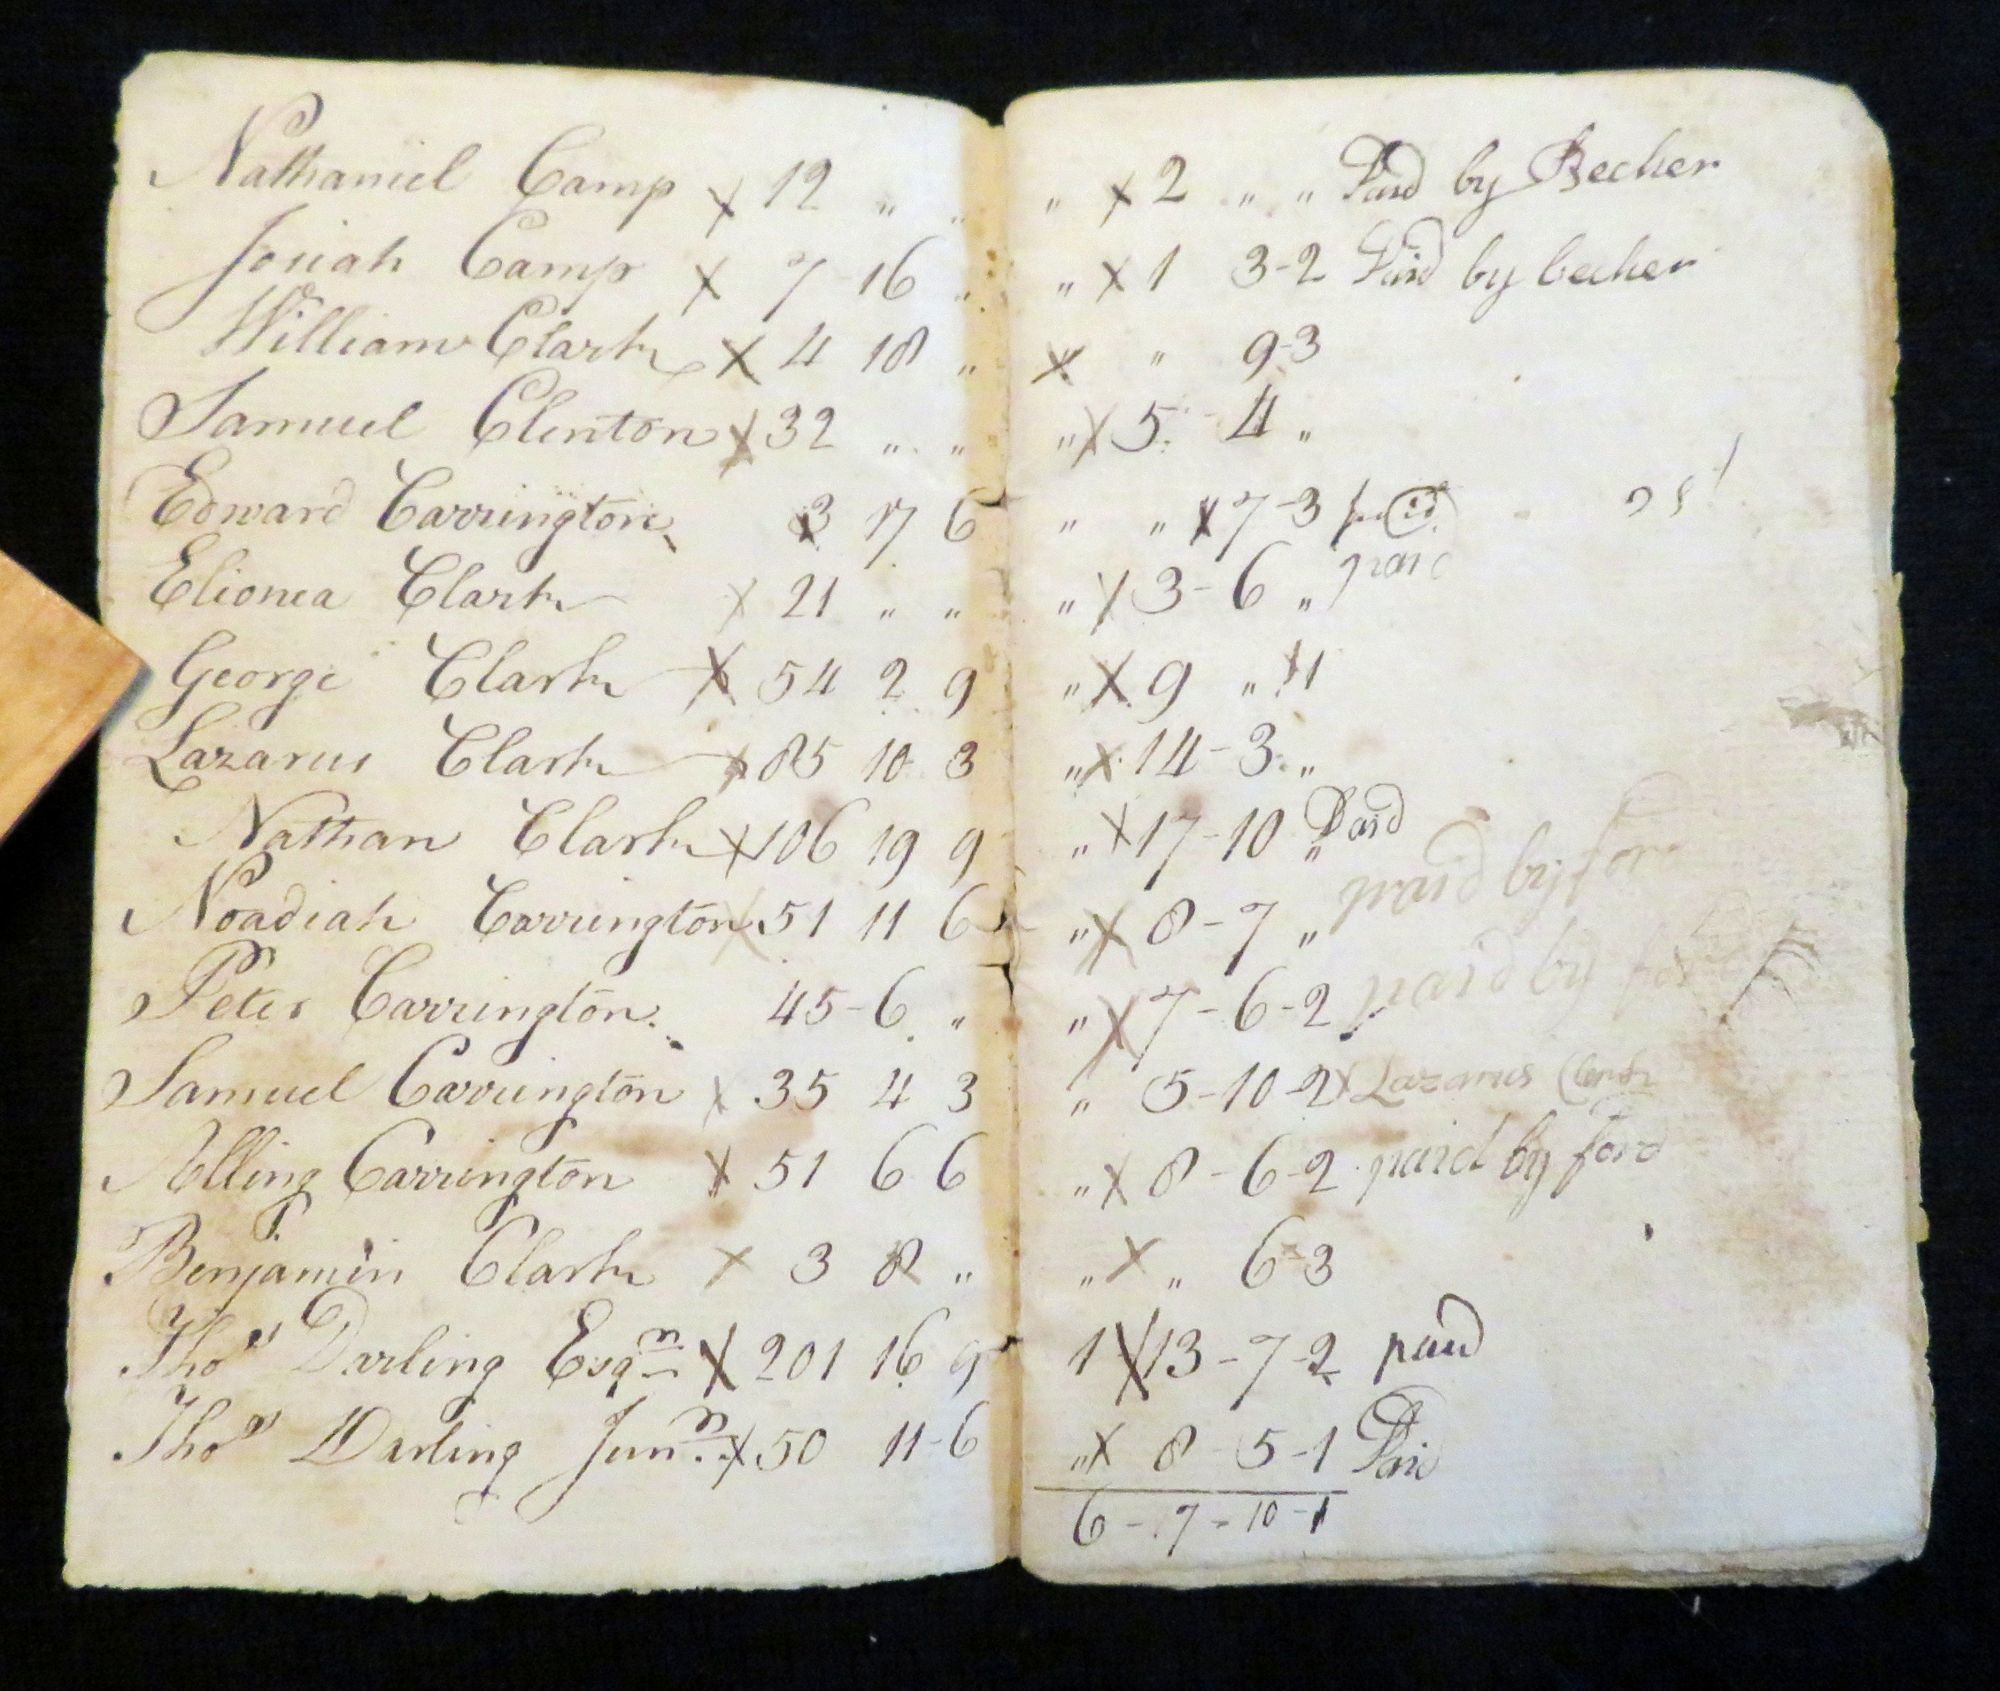 Nathaniel Camp X 12 " " " X 2 " " Paid by Becher
Josiah Camp X 7 16 " " X 1 3-2 Paid by becher
William Clark X 4 18 " X " 9-3
Samuel Clinton X 32 " " " X 5 - 4 "
Edward Carrington X 3 17 6 " " X 7-3 paid
Elionea Clark X 21 " " " X 3-6 " paid
George Clark X 54 2 9 " X 9 " 1
Lazarus Clark X 85 10 3 " X 14-3 "
Nathan Clark X 106 19 9 " X 17-10 " Paid
Noadiah Carrington X 51 11 6 " X 8-7 " paid by ford
Peter Carrington 45-6 " " X 7-6-2 paid by
Samuel Carrington X 35 4 3 " 5-10-2 X Lazarus Clark
Alling Carrington X 51 6 6 " X 8-6-2 paid by ford
Benjamin Clark X 3 8 " " X " 6-3
Thos Darling Esqr X 201 16 9 1 X 13-7-2 paid
Thos Darling Junr X 50 11-6 " X 8 5-1 Paid
6-7-10-1